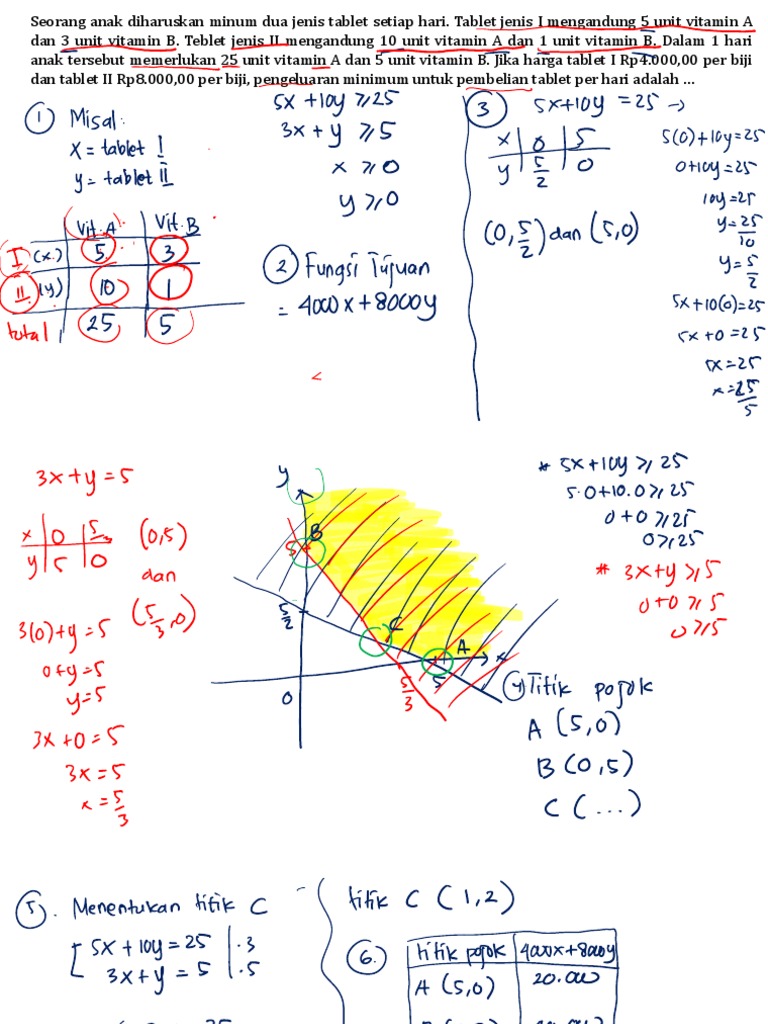 Seorang anak diharuskan minum dua jenis tablet setiap hari. Tablet jenis I mengandung 5 unit vitamin A
dan 3 unit vitamin B. Teblet jenis II mengandung 10 unit vitamin A dan 1 unit vitamin B. Dalam 1 hari
anak tersebut memerlukan 25 unit vitamin A dan 5 unit vitamin B. Jika harga tablet I Rp4.000,00 per biji
dan tablet II Rp8.000,00 per biji, pengeluaran minimum untuk pembelian tablet per hari adalah ...
① Misal:
x = tablet I
y = tablet II
Vit. A Vit. B
I (x) 5 3
II (y) 10 1
total 25 5
5x + 10y ≥ 25
3x + y ≥ 5
x ≥ 0
y ≥ 0
② Fungsi Tujuan
= 4000x + 8000y
<
③ 5x + 10y = 25 →
x 0 5
y 5/2 0
(0, 5/2) dan (5,0)
5(0) + 10y = 25
0 + 10y = 25
10y = 25
y = 25/10
y = 5/2
5x + 10(0) = 25
5x + 0 = 25
5x = 25
x = 25/5
3x + y = 5
x 0 5/3
y 5 0
(0,5)
dan
(5/3, 0)
3(0) + y = 5
0 + y = 5
y = 5
3x + 0 = 5
3x = 5
x = 5/3
y
B
5
5/2
C
A
x
0
5/3
5
* 5x + 10y ≥ 25
5.0 + 10.0 ≥ 25
0 + 0 ≥ 25
0 ≥ 25
* 3x + y ≥ 5
0 + 0 ≥ 5
0 ≥ 5
④ Titik pojok
A (5,0)
B (0,5)
C (...)
⑤. Menentukan titik C
5x + 10y = 25 | .3
3x + y = 5 | .5
titik C (1,2)
⑥.
titik pojok 4000x + 8000y
A (5,0) 20.000